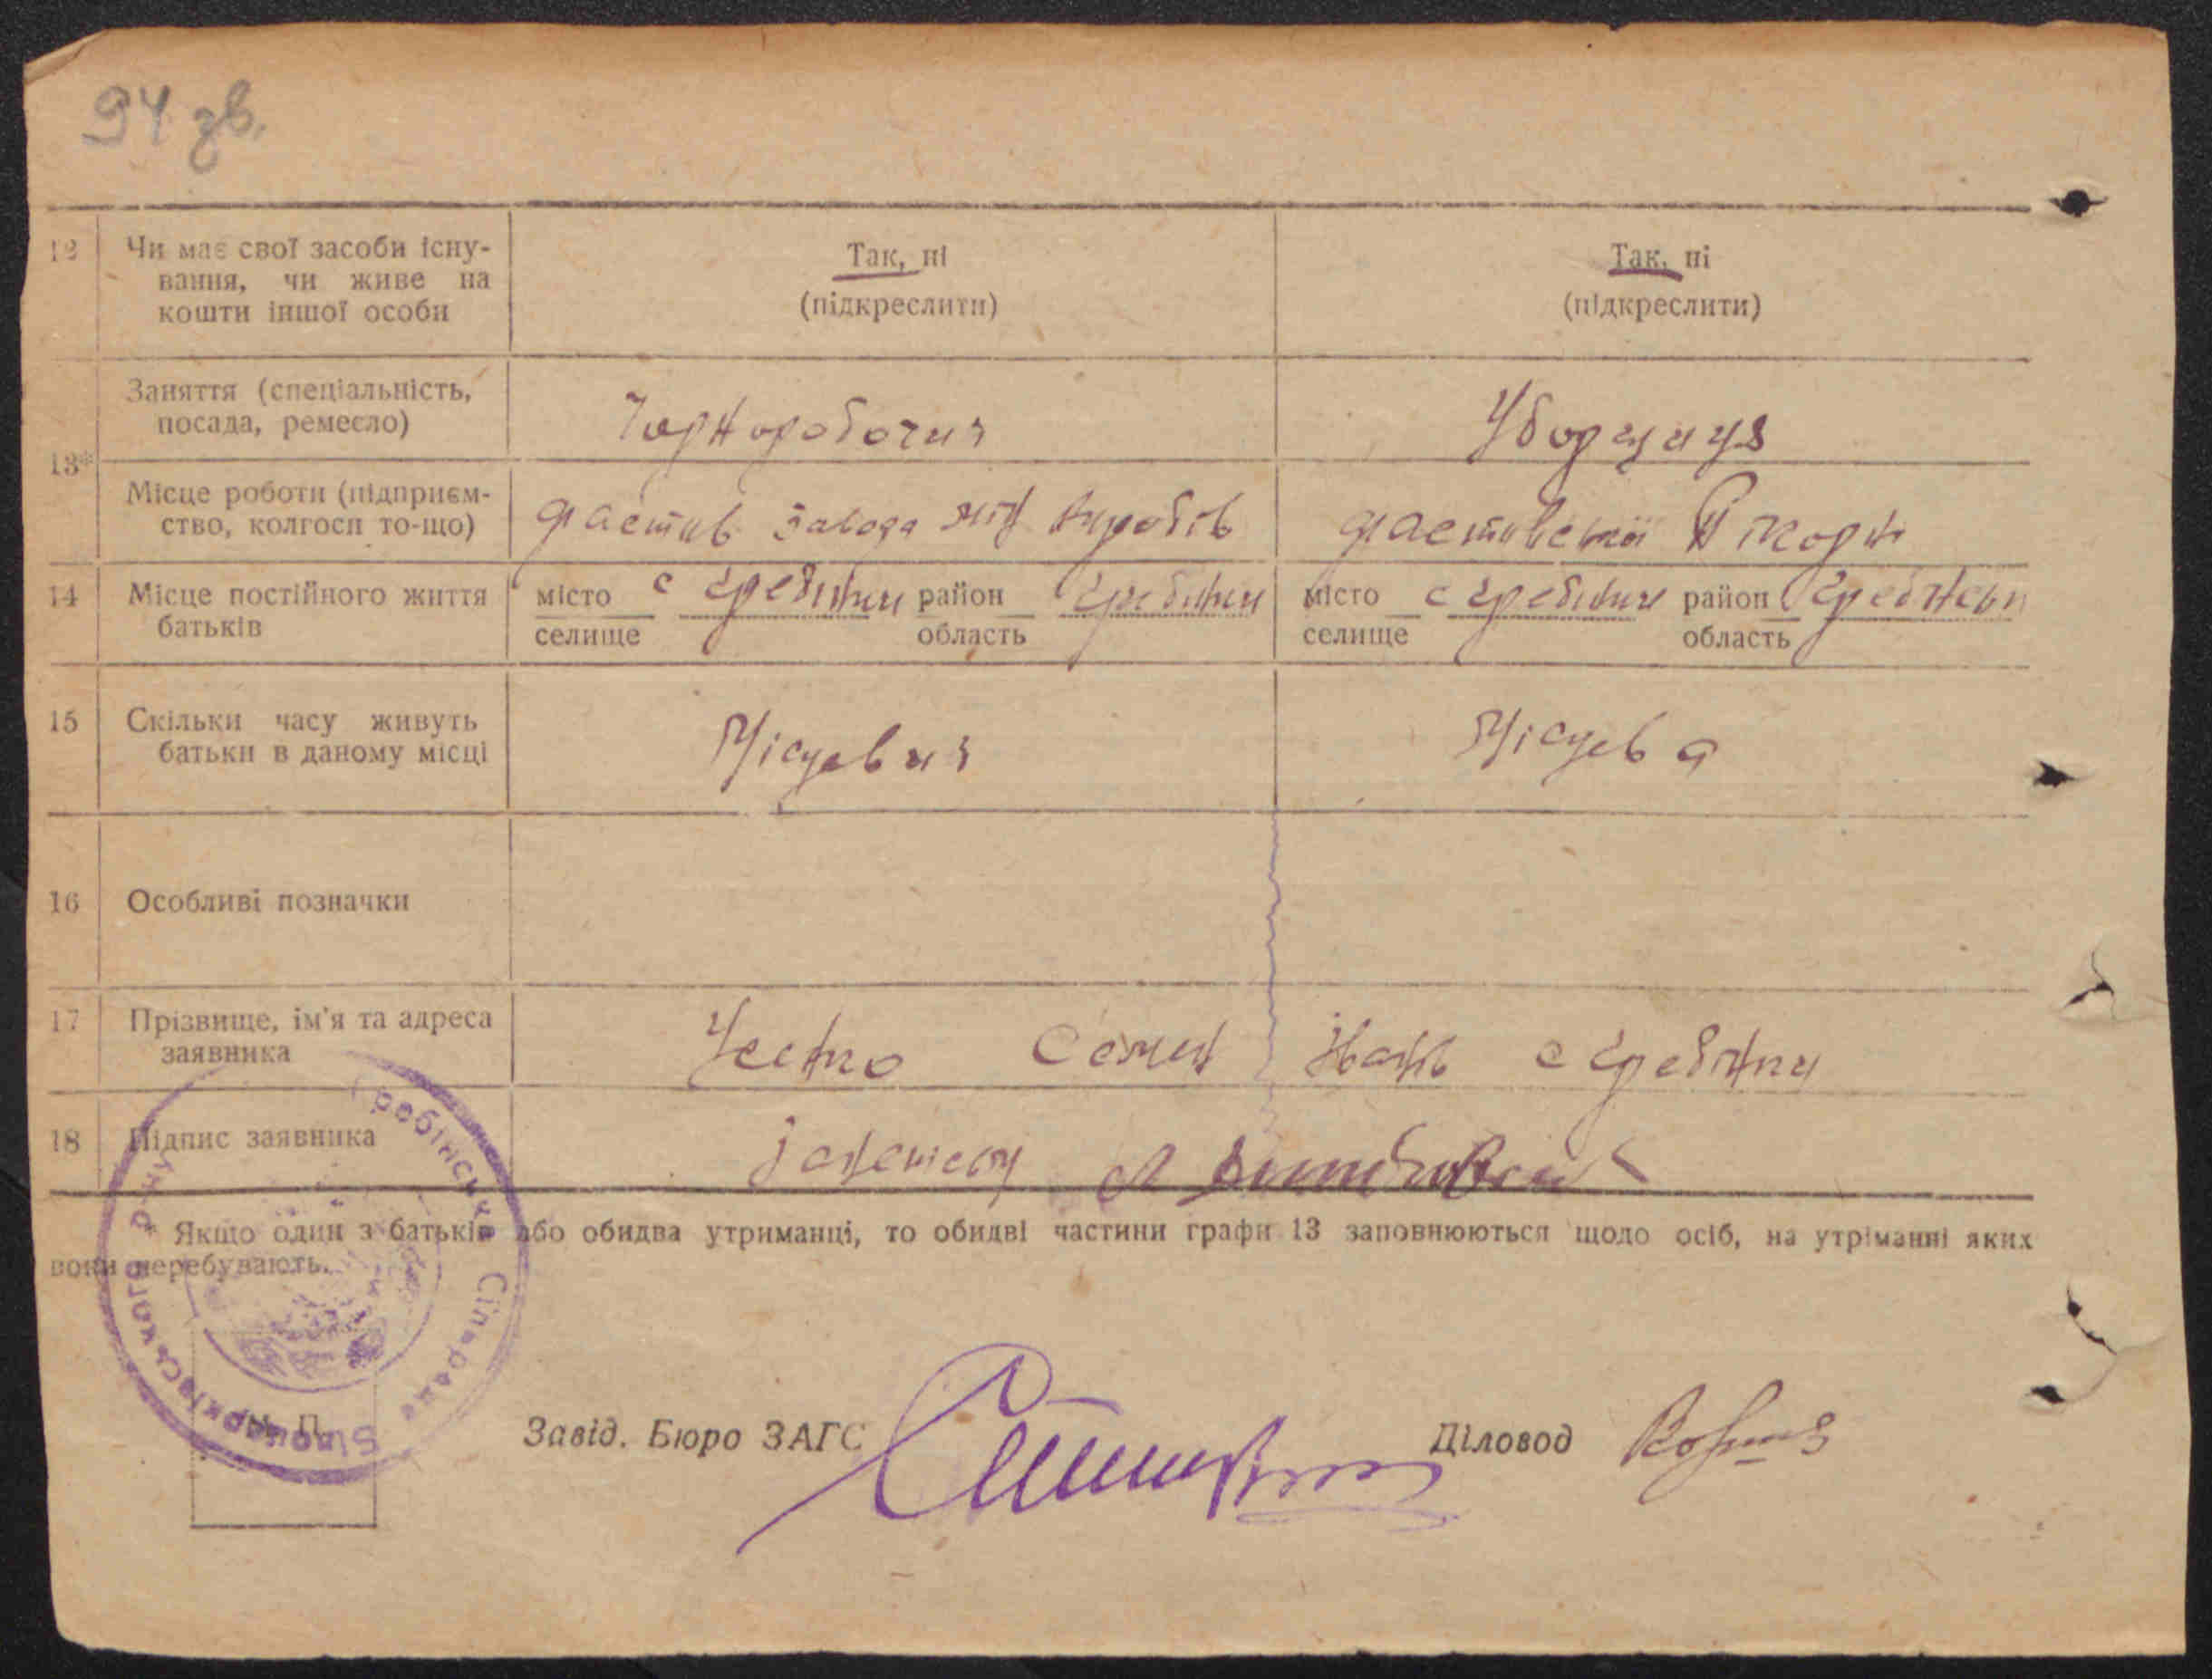 94 зв.
12 Чи має свої засоби існу-
вання, чи живе на
кошти іншої особи
Так, ні
(підкреслити)
Так, ні
(підкреслити)
13*
Заняття (спеціальність,
посада, ремесло)
Чорноробочий
Уборщиця
Місце роботи (підприєм-
ство, колгосп то-що)
фастів завода виробів
фастівської
14 Місце постійного життя
батьків
місто с Гребінки район Гребінки
селище область
місто с Гребінки район Гребінки
селище область
15 Скільки часу живуть
батьки в даному місці
Місцевий
Місцева
16 Особливі позначки
17 Прізвище, ім'я та адреса
заявника
Семен Іванів с Гребінки
18 Підпис заявника
* Якщо один з батьків або обидва утриманці, то обидві частини графи 13 заповнюються щодо осіб, на утріманні яких
вони перебувають.
Гребінська Сільрада Білоцерківського р-ну
М. П.
Завід. Бюро ЗАГС
Діловод